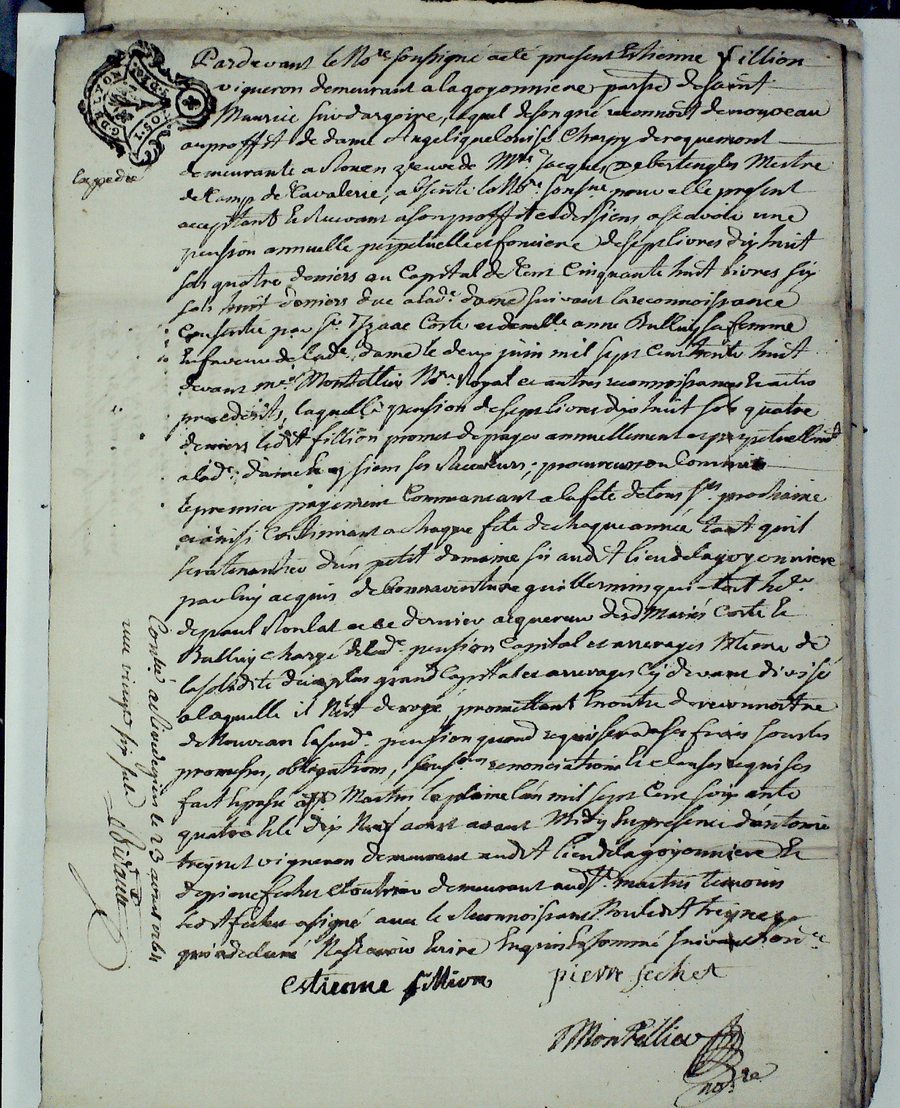 G.D.LYON
Expedié
Pardevant le No.re soussigné a eté present Estienne fillion
vigneron demeurant a la goyonniere parsse de saint
Maurice sur dargoire, lequel de son gré reconnoit de nouveau
au proffit de dame Angelique louise Charpy de
demeurante a veuve de Mre Jacques Mestre
de Camp de Cavalerie, absente le No.re sousne. pour elle present
acceptant Et stipulant a son proffit et des siens ascavoir une
pension annuelle perpetuelle et fonciere de sept livres dix huit
sols quatre deniers au Capital de Cent Cinquante huit livres six
sols huit deniers due a lade. dame suivant la reconnoissance
Consentie par Sr. Izaac Coste et demelle anne Balluy sa femme
En faveur de lade. dame le deux juin mil sept Cent trente huit
devant Montellier Nore. Royal et autres reconnoissances Et actes
precedents, laquelle pension de sept livres dix huit sols quatre
deniers ledit fillion promet de payer annuellement et perpetuellemt
a lade. dame siens ses successeurs, procureur ou Commis
le premier payement Commencant a la fete de tous Sts prochaine
et ainsi Continuant a chaque fete de chaque année tant qu'il
sera tenantier d'un petit domaine sis audit lieu de la goyonniere
par luy acquis de bonnaventure guillermin qui etoit
de paul et ce dernier acquereur desd. Mariés Coste Et
Balluy chargé de lade. pension Capital et arrerages de
la solidite du plus grand Capital et arrerages Cy devant divisé
a laquelle il N'est derogé, promettant En outre de reconnoitre
de Nouveau la susde. pension quand requis sera a ses frais sous les
promesses, obligations, renonciations Et clauses requises
fait Et passé a St Martin la plaine l'an mil sept Cent soixante
quatre Et le dix Neuf aoust avant Midy En presence d'antoine
treynet vigneron demeurant audit lieu de la goyonniere Et
de pierre demeurant audt St. martin temoins
ledit a signé avec le Reconnoissant Non ledit treynet
qui a declaré Ne scavoir Ecrire Enquis Et sommé suivant l'ordce
estienne fillion pierre sechet
Montellier
nore
Contlé le 23 aoust 1764